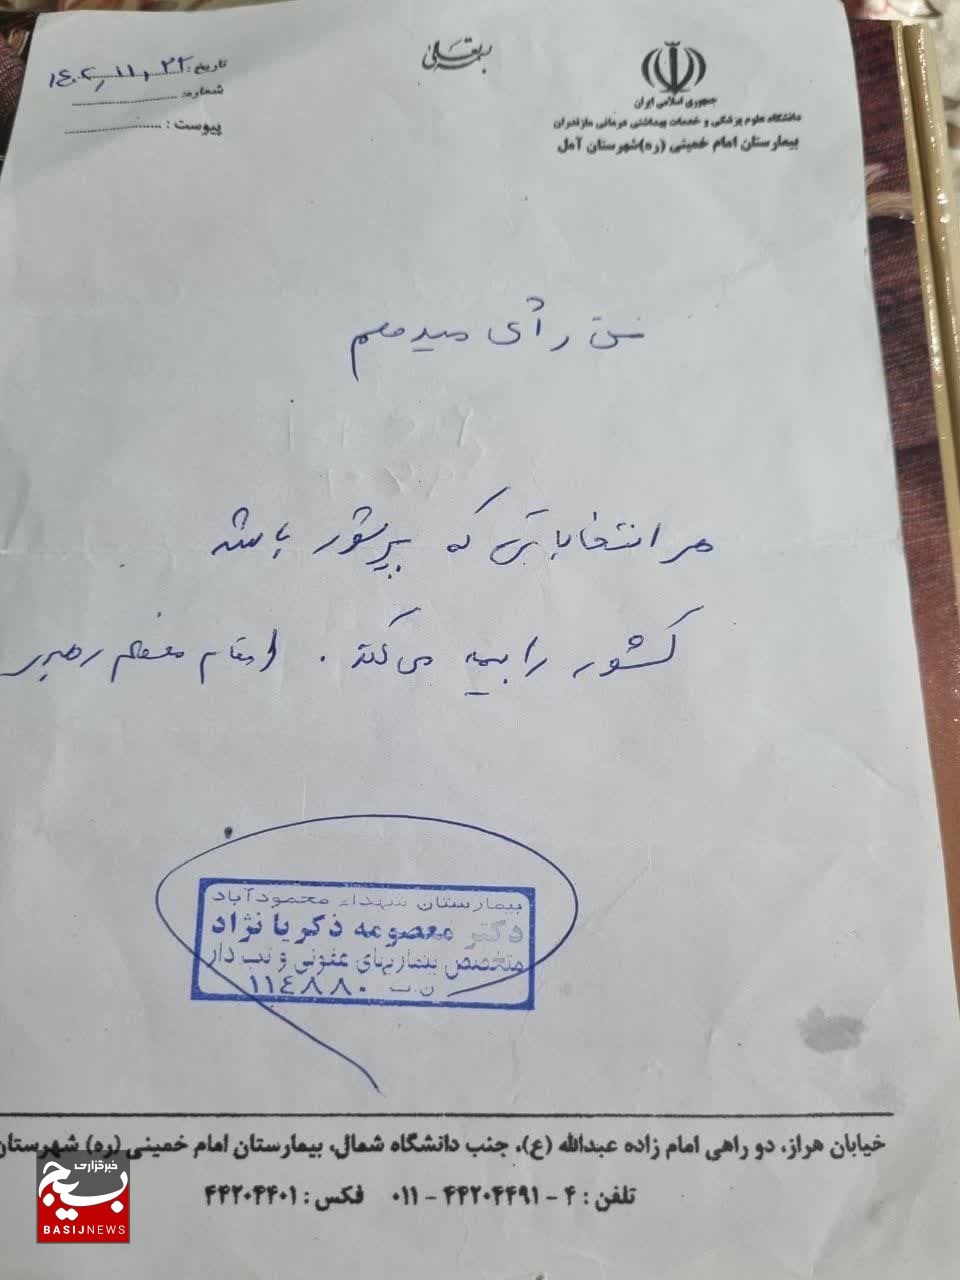 بسمه تعالی
جمهوری اسلامی ایران
دانشگاه علوم پزشکی و خدمات بهداشتی درمانی مازندران
بیمارستان امام خمینی (ره)شهرستان آمل
تاریخ: ۱۴۰۲/۱۱/۲۲
شماره:
پیوست:
من رأی میدهم
هر انتخاباتی که پرشور باشد
کشور را بیمه می‌کند. (مقام معظم رهبری
بیمارستان شهداء محمودآباد
دکتر معصومه ذکریا نژاد
متخصص بیماریهای عفونی و تب دار
ن.پ ۱۱۴۸۸۰
خیابان هراز، دو راهی امام زاده عبدالله (ع)، جنب دانشگاه شمال، بیمارستان امام خمینی (ره) شهرستان
تلفن: ۴ - ۴۴۲۰۴۴۹۱ - ۰۱۱ فکس: ۴۴۲۰۴۴۰۱
خبرگزاری
بسیج
BASIJNEWS